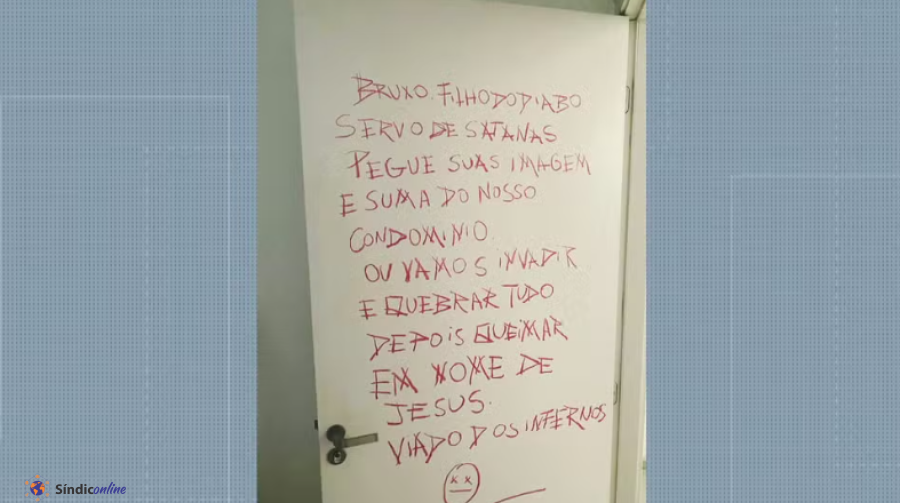 BRUXO. FILHO DO DIABO
SERVO DE SATANAS
PEGUE SUAS IMAGEM
E SUMA DO NOSSO
CONDOMINIO.
OU VAMOS INVADIR
E QUEBRAR TUDO
DEPOIS QUEIMAR
EM NOME DE
JESUS.
VIADO DOS INFERNOS
Síndiconline